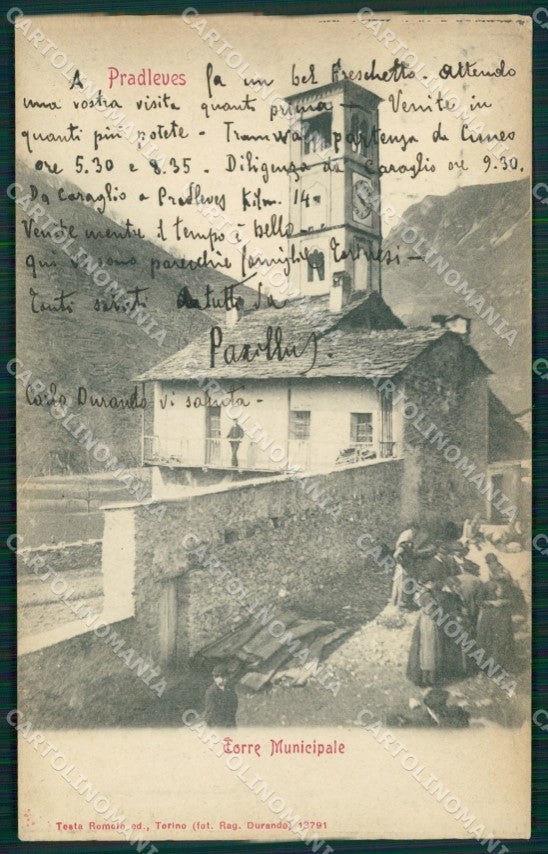 A Pradleves fa un bel freschetto. attendo
una vostra visita quanto prima - Venite in
quanti più potete - Tramway partenza da Cuneo
ore 5.30 e 8.35. Diligenza da Caraglio ore 9.30.
Da Caraglio a Pradleves Kilm. 14 -
Venite mentre il tempo è bello -
qui vi sono parecchie famiglie Torinesi -
Tanti saluti da tutto
Carlo Durando vi saluta -
Torre Municipale
Testa Romolo ed., Torino (fot. Rag. Durando) 13791
CARTOLINOMANIA